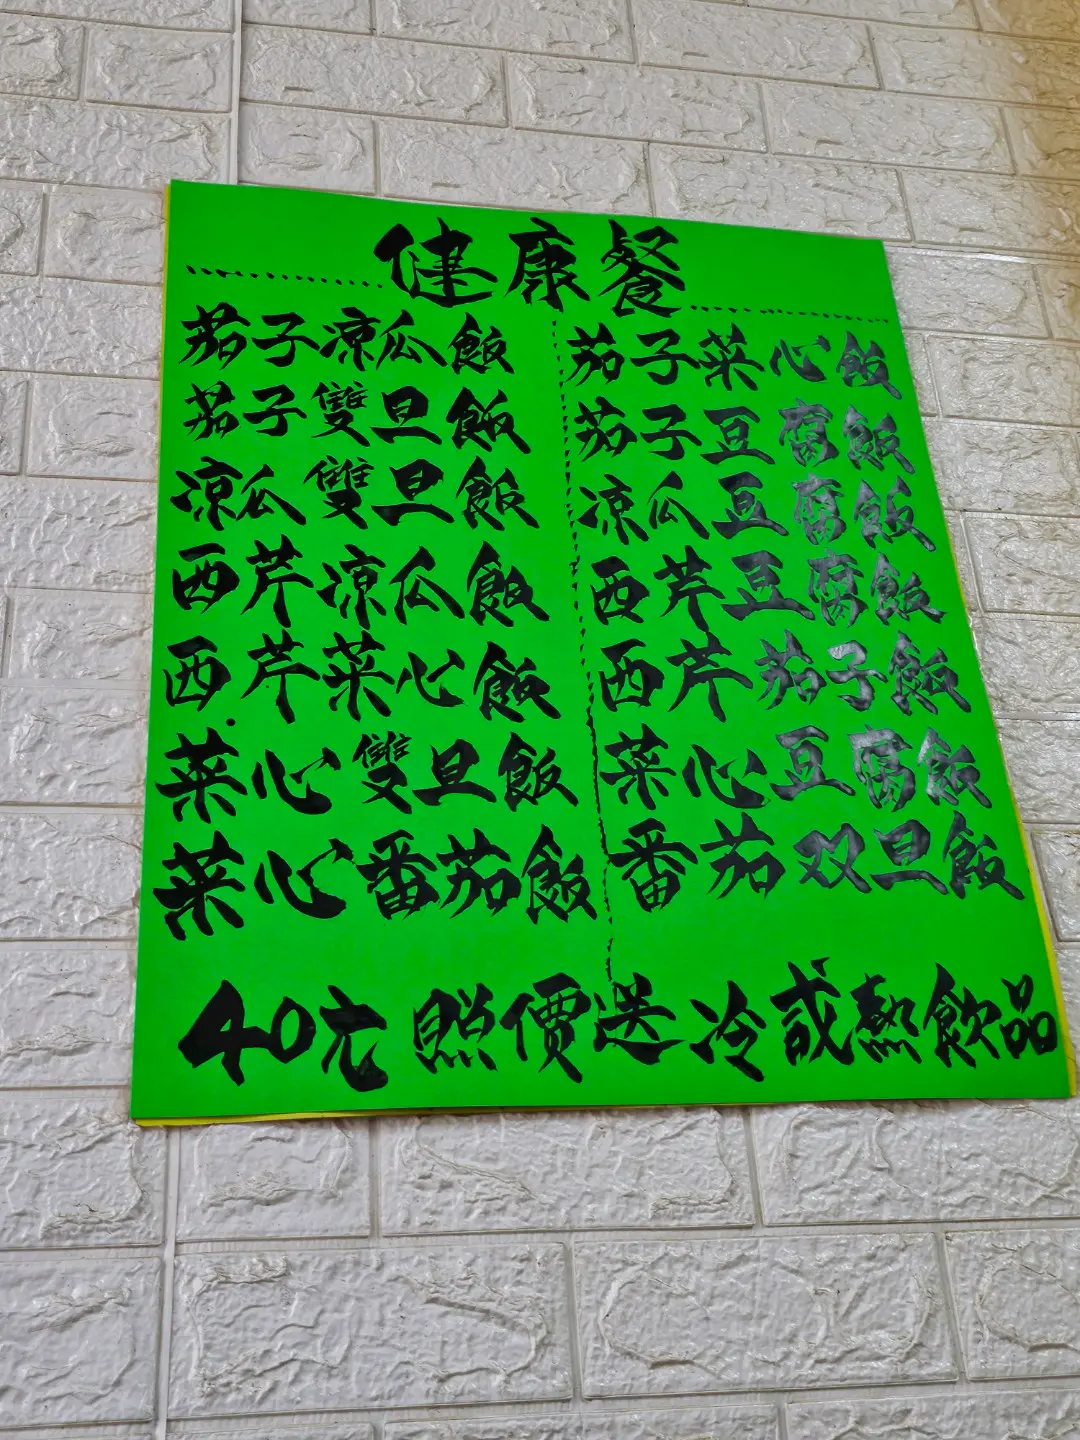 健康餐
茄子涼瓜飯
茄子雙旦飯
涼瓜雙旦飯
西芹涼瓜飯
西芹菜心飯
菜心雙旦飯
菜心番茄飯
茄子菜心飯
茄子豆腐飯
涼瓜豆腐飯
西芹豆腐飯
西芹茄子飯
菜心豆腐飯
番茄双旦飯
40元 照價送冷或熱飲品